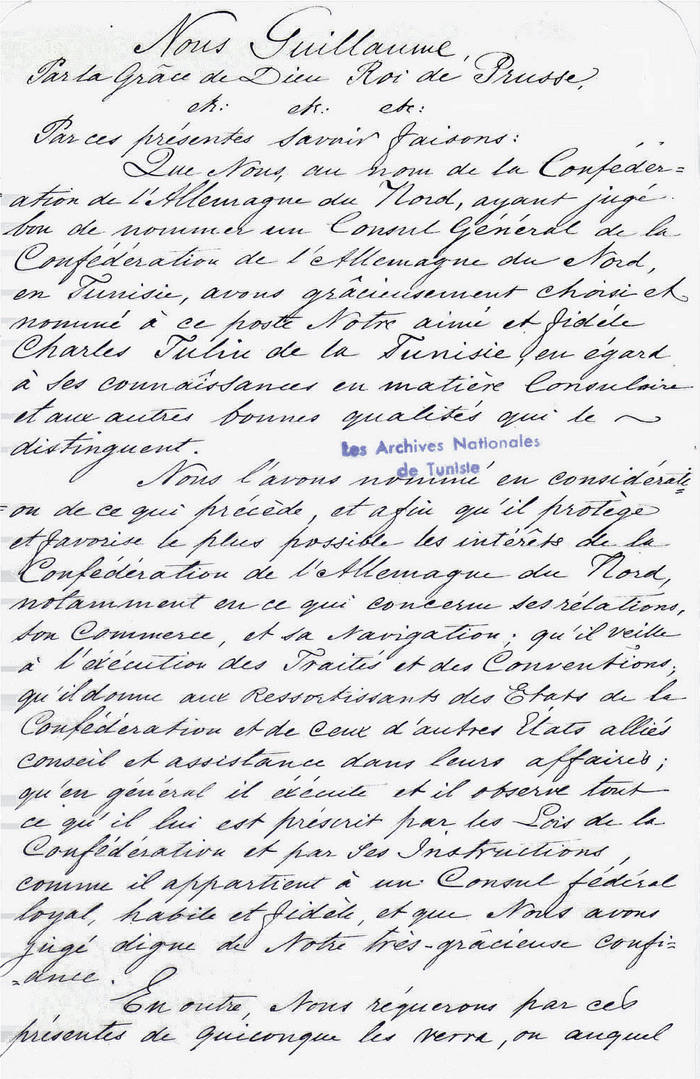 Nous Guillaume,
Par la Grâce de Dieu Roi de Prusse,
etc: etc: etc:
Par ces présentes savoir faisons:
Que Nous, au nom de la Confédér=
=ation de l'Allemagne du Nord, ayant jugé
bon de nommer un Consul Général de la
Confédération de l'Allemagne du Nord,
en Tunisie, avons grâcieusement choisi et
nommé à ce poste Notre aimé et fidéle
Charles Tulin de la Tunisie, en égard
à ses connaîssances en matière Consulaire
et aux autres bonnes qualités qui le ~
distinguent.
Les Archives Nationales
de Tunisie
Nous l'avons nommé en considérati=
=on de ce qui précéde, et afin qu'il protège
et favorise le plus possible les intérêts de la
Confédération de l'Allemagne du Nord,
notamment en ce qui concerne ses rélations,
son Commerce, et sa Navigation; qu'il veille
à l'éxécution des Traités et des Conventions;
qu'il donne aux Ressortissants des Etats de la
Confédération et de ceux d'autres Etats alliés
conseil et assistance dans leurs affaires;
qu'en général il éxécute et il observe tout
ce qu'il lui est préscrit par les Lois de la
Confédération et par Ses Instructions,
comme il appartient à un Consul fédéral
loyal, habile et fidèle, et que Nous avons
jugé digne de Notre très-grâcieuse confi=
=ance.
En outre, Nous réquerons par ces
présentes de quiconque les verra, ou auquel